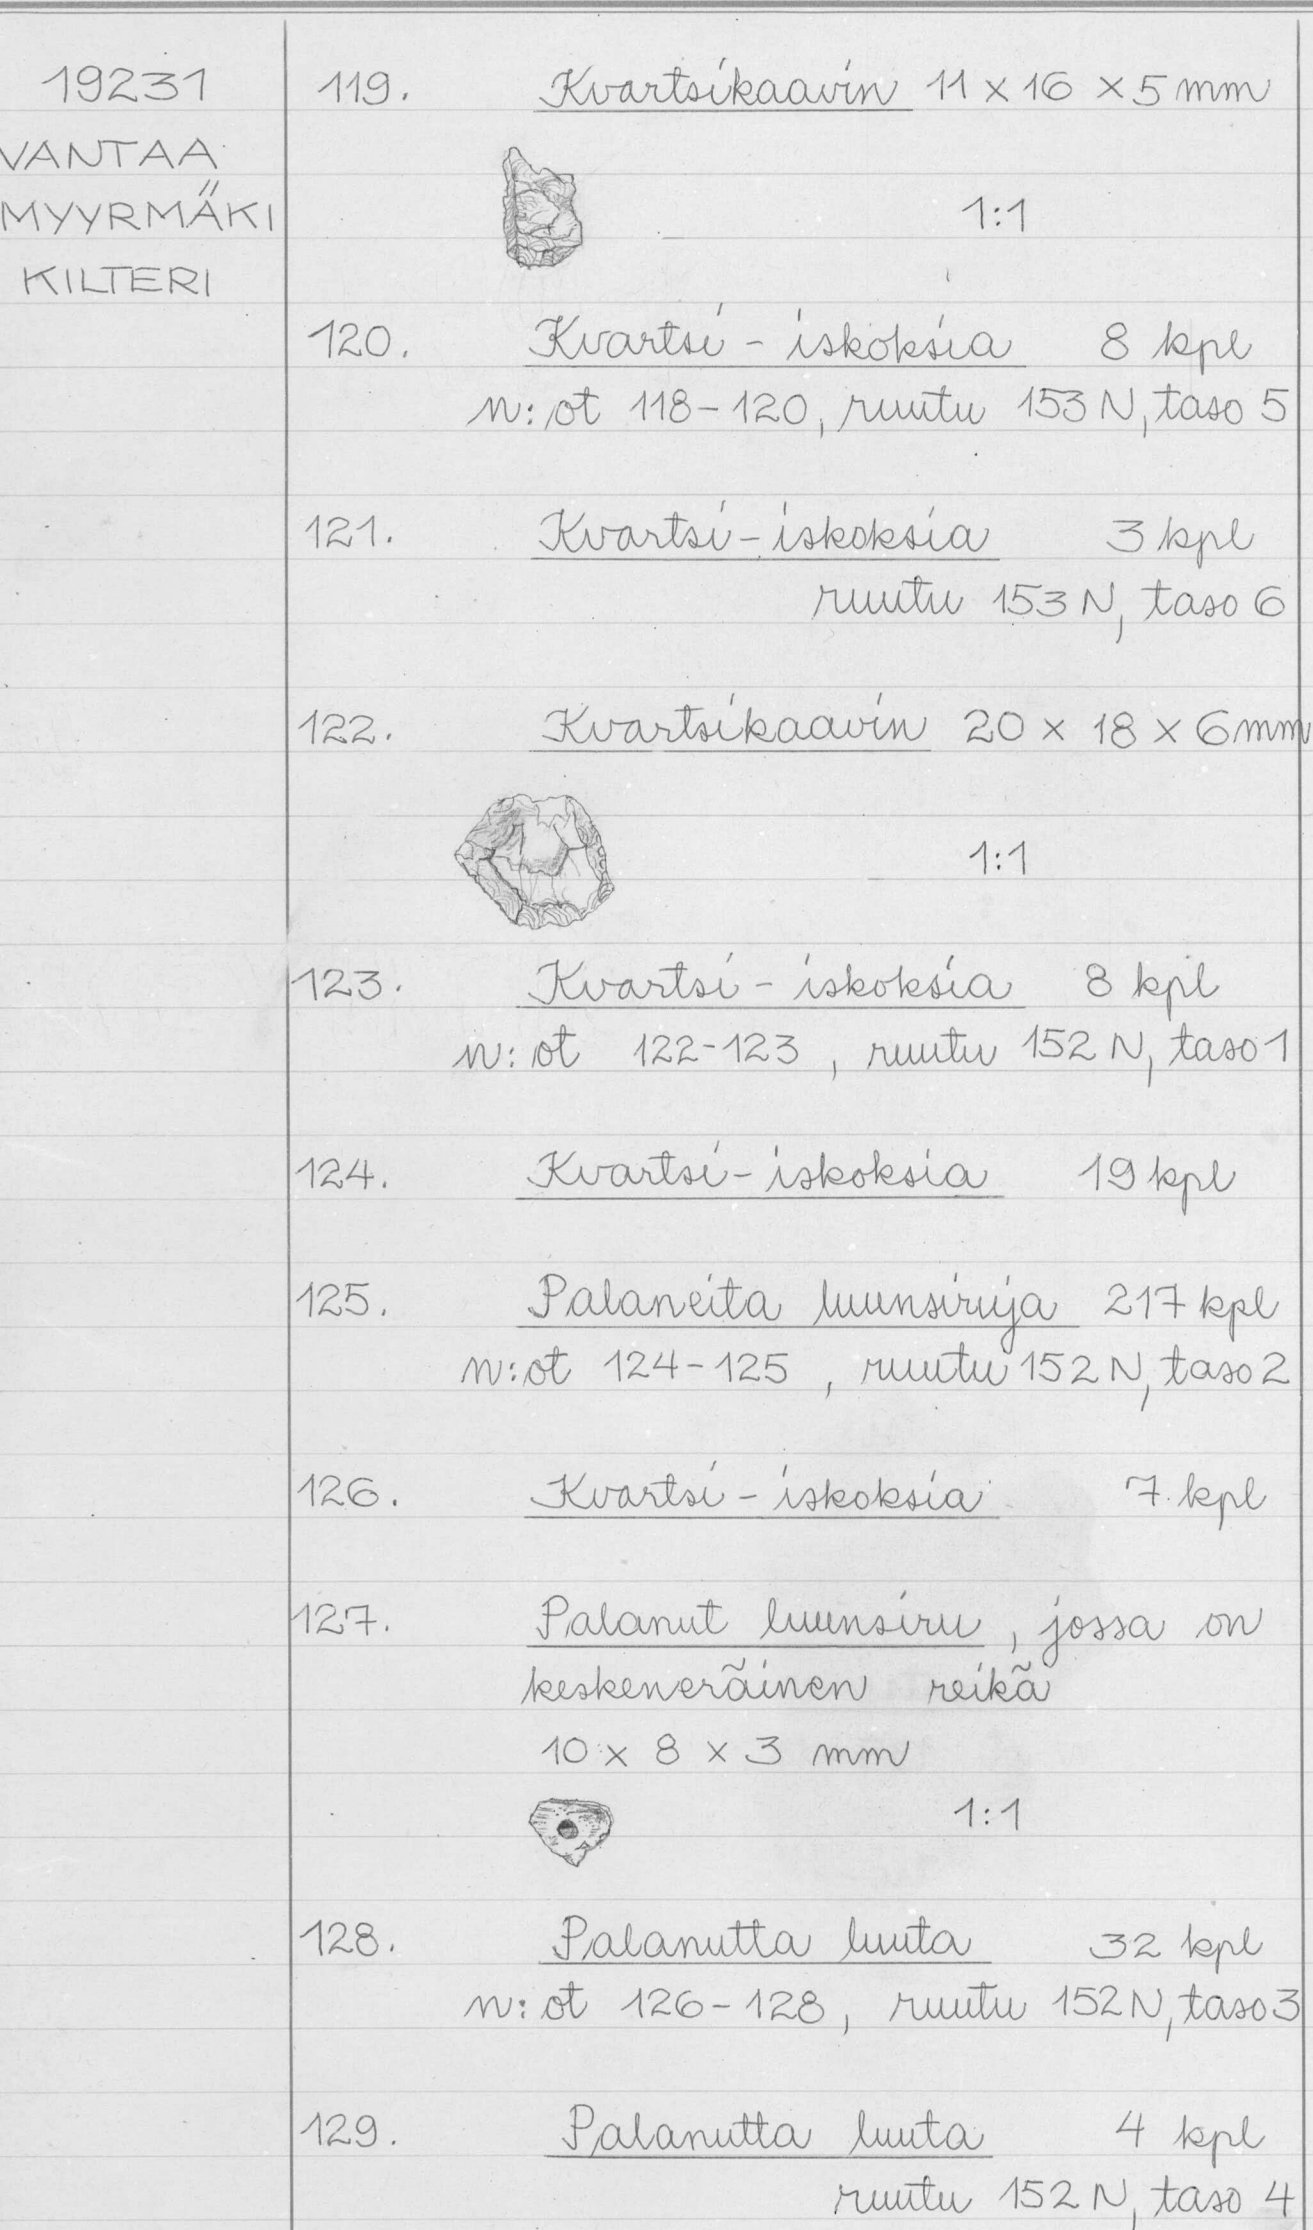 19231
VANTAA
MYYRMÄKI
KILTERI
119. Kvartsikaavin 11 x 16 x 5 mm
1:1
120. Kvartsi - iskoksia 8 kpl
n:ot 118-120, ruutu 153 N, taso 5
121. Kvartsi - iskoksia 3 kpl
ruutu 153 N, taso 6
122. Kvartsikaavin 20 x 18 x 6 mm
1:1
123. Kvartsi - iskoksia 8 kpl
n:ot 122-123, ruutu 152 N, taso 1
124. Kvartsi - iskoksia 19 kpl
125. Palaneita luunsiruja 217 kpl
n:ot 124-125, ruutu 152 N, taso 2
126. Kvartsi - iskoksia 7 kpl
127. Palanut luunsiru, jossa on
keskeneräinen reikä
10 x 8 x 3 mm
1:1
128. Palanutta luuta 32 kpl
n:ot 126-128, ruutu 152 N, taso 3
129. Palanutta luuta 4 kpl
ruutu 152 N, taso 4